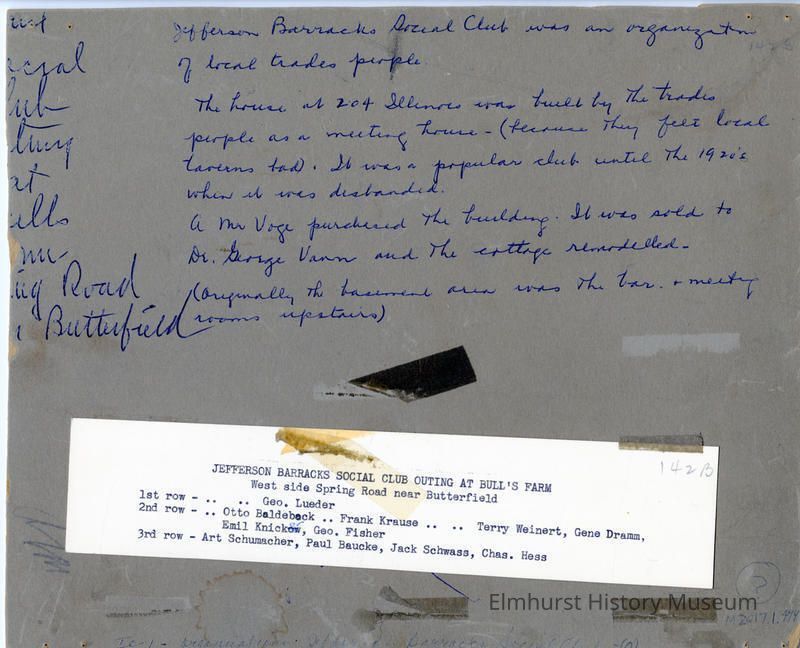 Jefferson Barracks Social Club was an organization
of local trades people.
142B
The house at 204 Illinois was built by the trades
people as a meeting house - (because they felt local
taverns bad). It was a popular club until the 1920's
when it was disbanded.
A Mr Voge purchased the building. It was sold to
Dr. George Vann and the cottage remodelled -
(originally the basement area was the bar. + meeting
rooms upstairs)
ocial
lub
ting
at
ells
ing Road
Butterfield
142B
JEFFERSON BARRACKS SOCIAL CLUB OUTING AT BULL'S FARM
West side Spring Road near Butterfield
1st row - .. .. Geo. Lueder
2nd row - .. Otto Baldeback .. Frank Krause .. .. Terry Weinert, Gene Dramm,
Emil Knickow, Geo. Fisher
3rd row - Art Schumacher, Paul Baucke, Jack Schwass, Chas. Hess
?
Elmhurst History Museum
M2017.1.